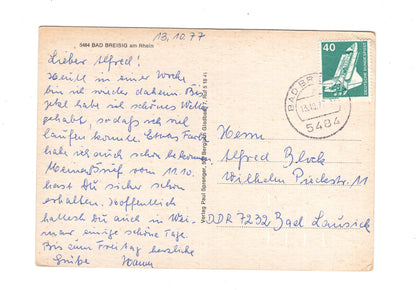 13.10.77
5484 BAD BREISIG am Rhein
Lieber Alfred!
Heute in einer Woche
bin ich wieder daheim. Bis
jetzt habe ich schönes Wetter
gehabt, so daß ich viel
laufen konnte. Etwas Farbe
habe ich auch schon bekommen.
Meinen Brief vom 11.10.
hast Du sicher schon
erhalten. Hoffentlich
hattest Du auch in Wei-
mar einige schöne Tage.
Bis zum Freitag herzliche
Grüße
Verlag Paul Sprenger, 507 Bergisch Gladbach 2, Ruf 5 10 41
40
DEUTSCHE BUNDESPOST
BAD BREISIG
13.10.77
5484
Herrn
Alfred Block
Wilhelm Pieckstr. 11
DDR 7232 Bad Lausick